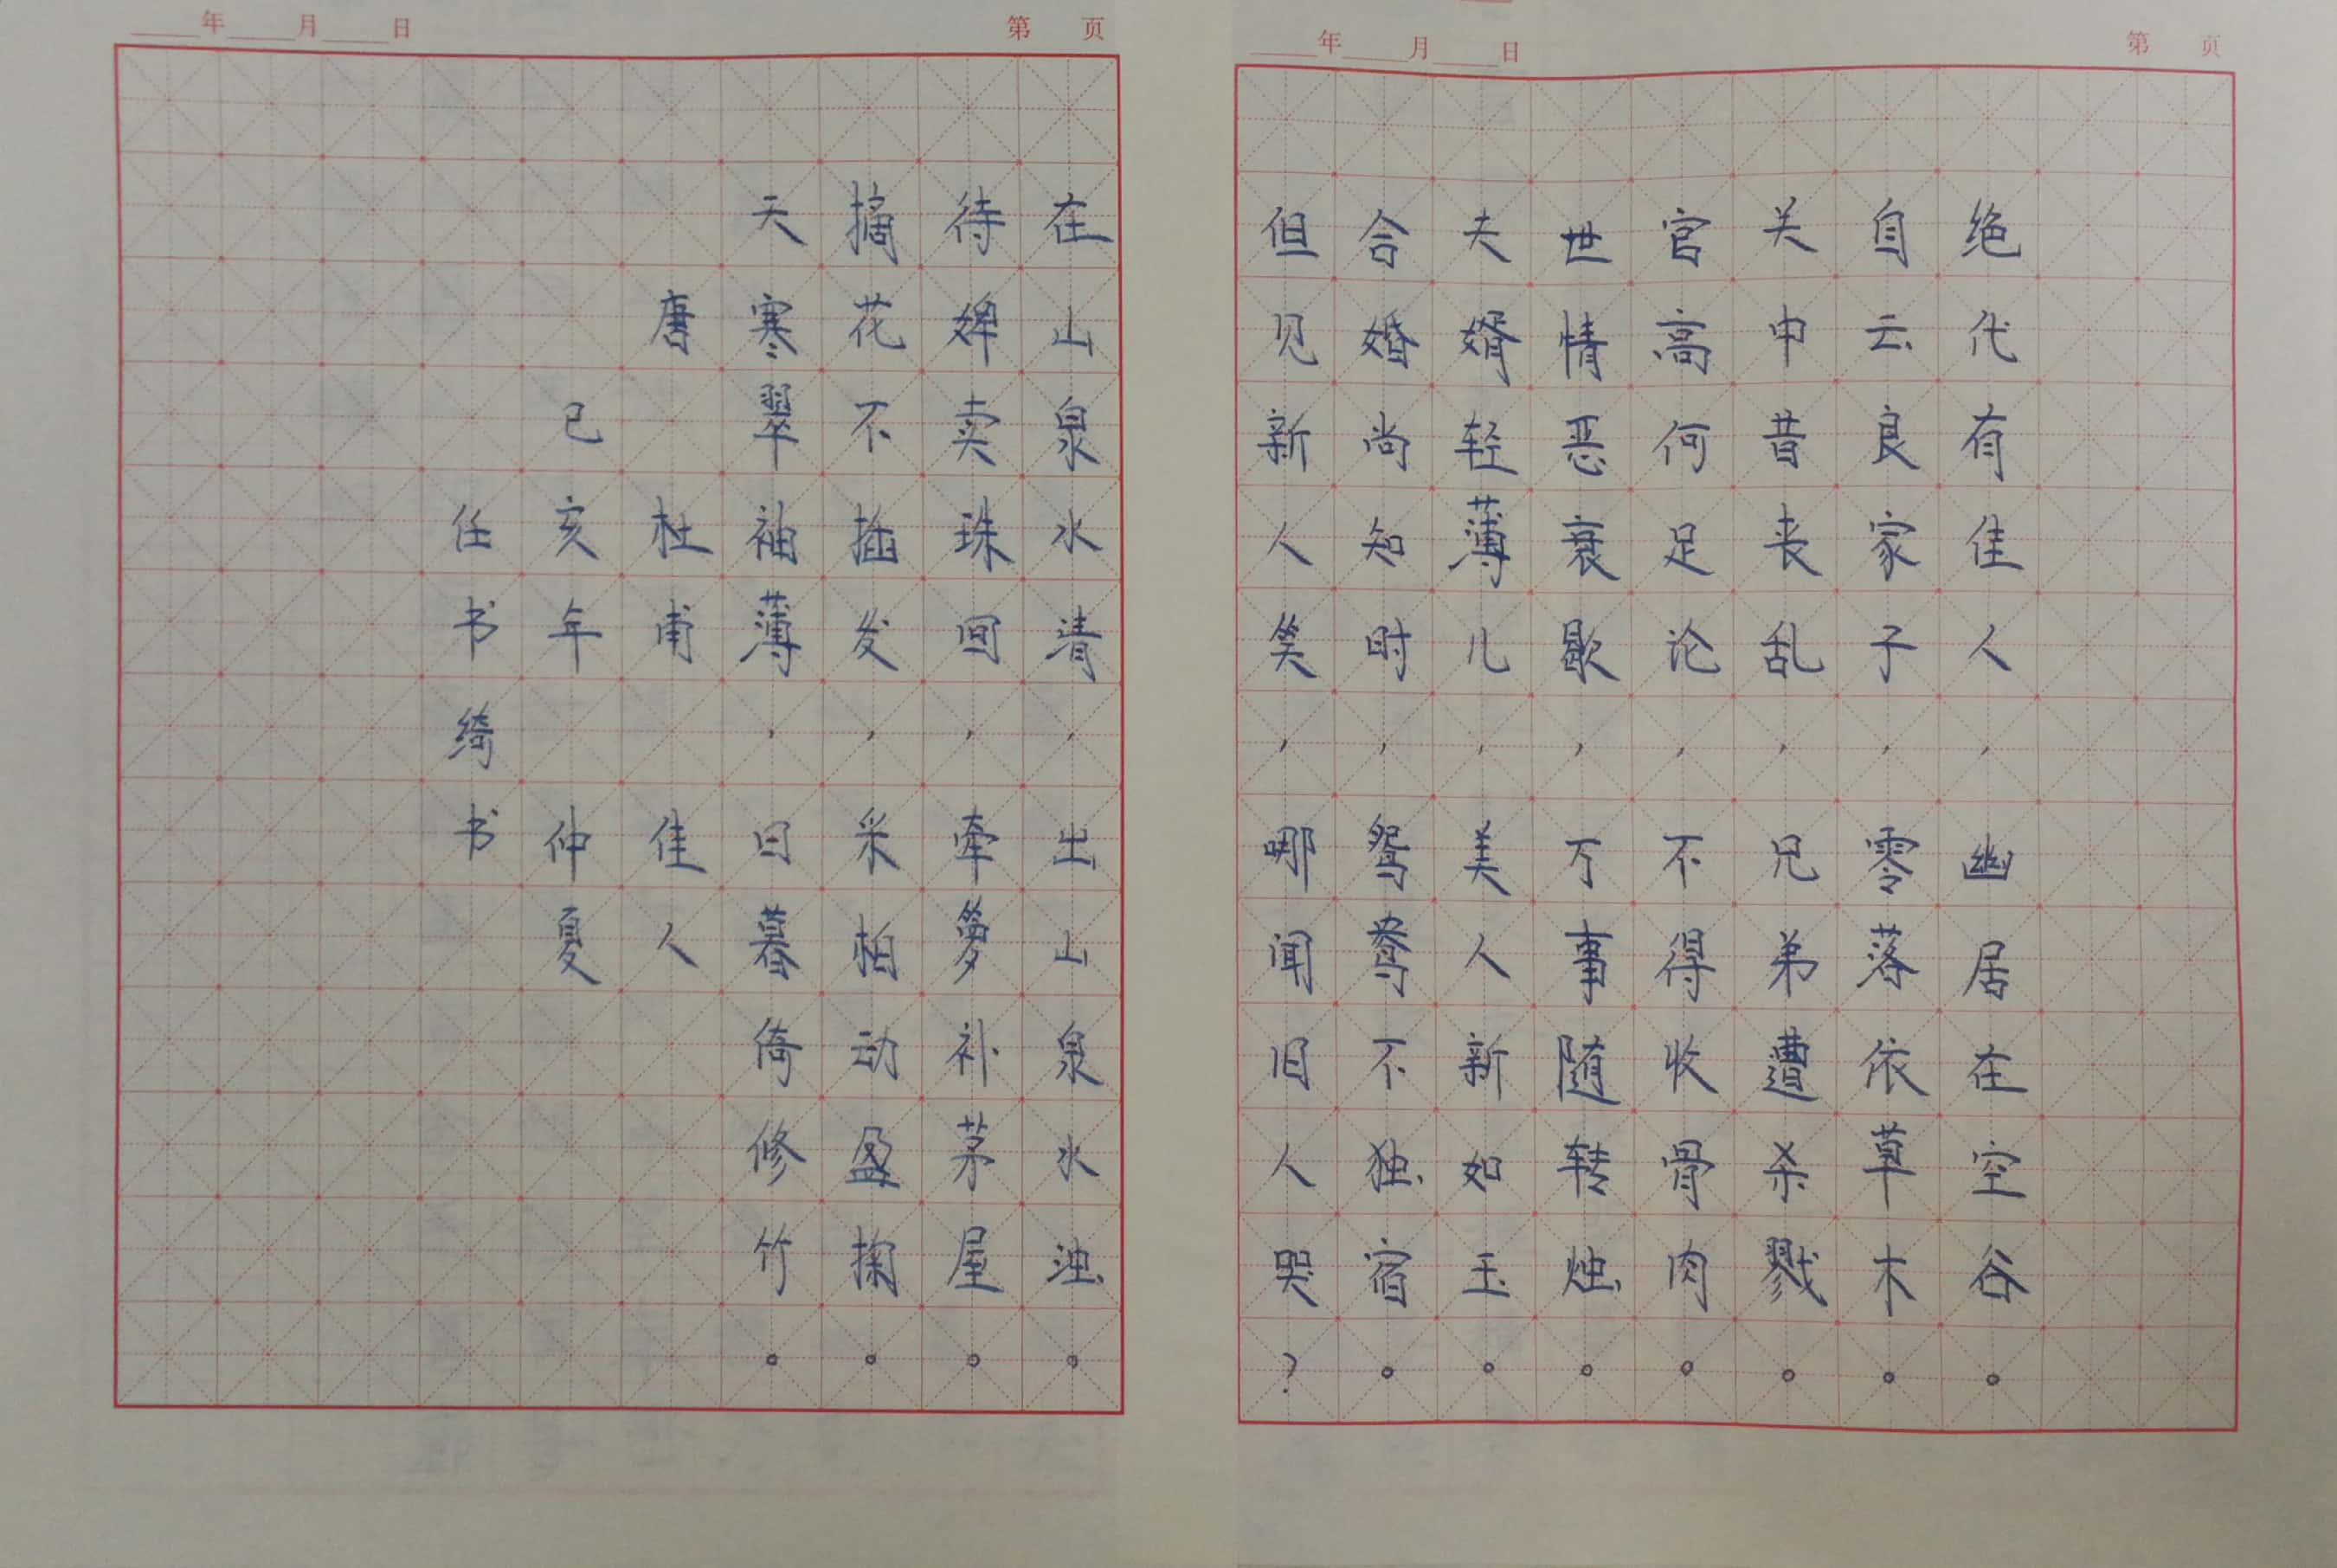 年 月 日 第 页
绝代有佳人，幽居在空谷。
自云良家子，零落依草木。
关中昔丧乱，兄弟遭杀戮。
官高何足论，不得收骨肉。
世情恶衰歇，万事随转烛。
夫婿轻薄儿，美人新如玉。
合婚尚知时，鸳鸯不独宿。
但见新人笑，哪闻旧人哭？
年 月 日 第 页
在山泉水清，出山泉水浊。
待婢卖珠回，牵箩补茅屋。
摘花不插发，采柏动盈掬。
天寒翠袖薄，日暮倚修竹。
唐 杜甫 佳人
己亥年 仲夏
任书绮书